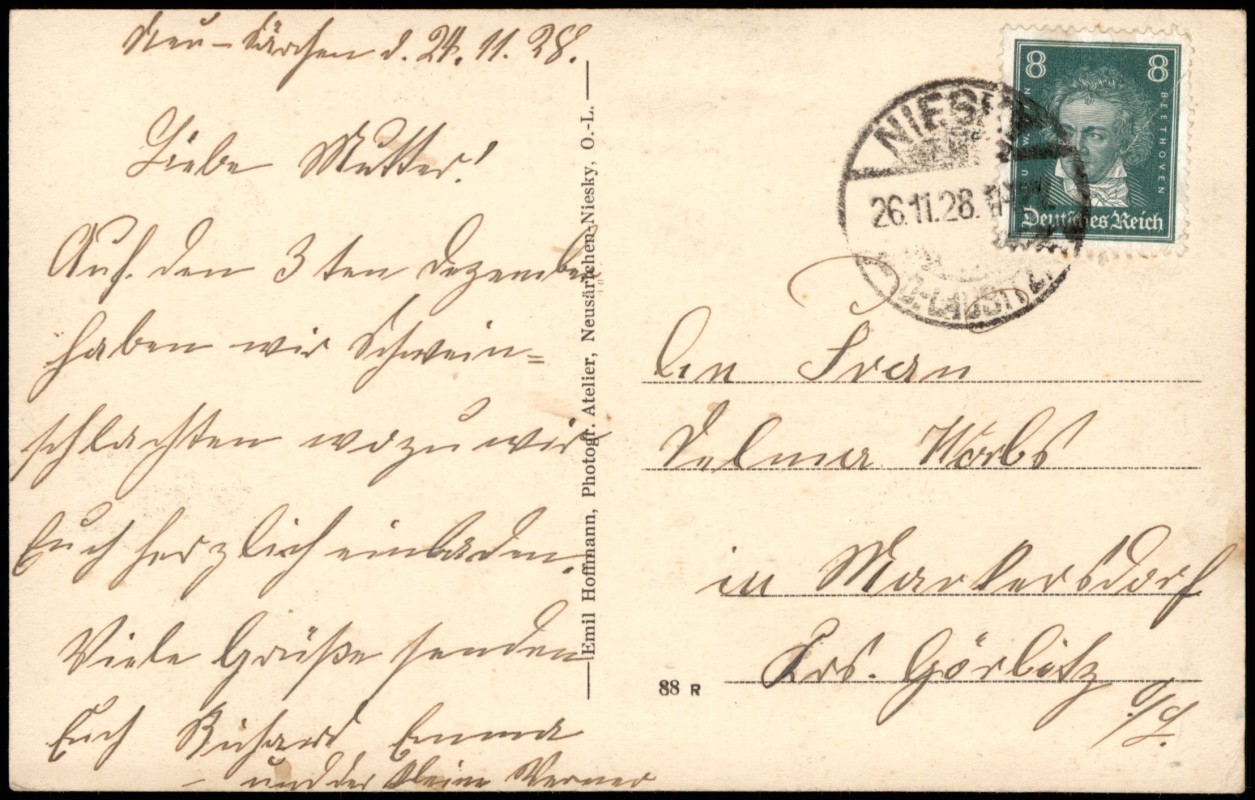 Neu-Särchen d. 24. 11. 28.
Liebe Mutter!
Auf. den 3 ten Dezember
haben wir Schwein=
schlachten wozu wir
Euch herzlich einladen.
Viele Grüße senden
Euch Richard Emma
und der kleine Werner
Emil Hoffmann, Photogr. Atelier, Neusärichen-Niesky, O.-L.
8 8
BEETHOVEN
Deutsches Reich
NIESKY
26.11.28.
An Frau
Selma Worbs
in Markersdorf
Krs. Görlitz
O/L.
88 R